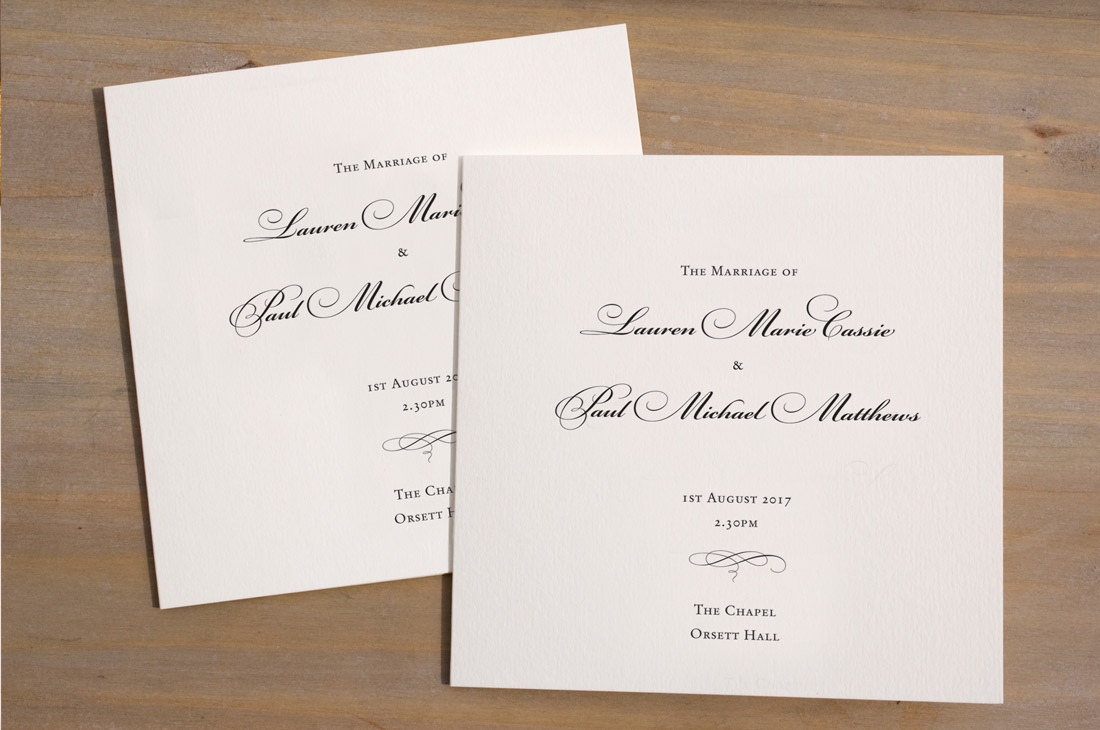 The Marriage of
Lauren Marie
&
Paul Michael
1st August
2.30pm
The
Orsett
The Marriage of
Lauren Marie Cassie
&
Paul Michael Matthews
1st August 2017
2.30pm
The Chapel
Orsett Hall